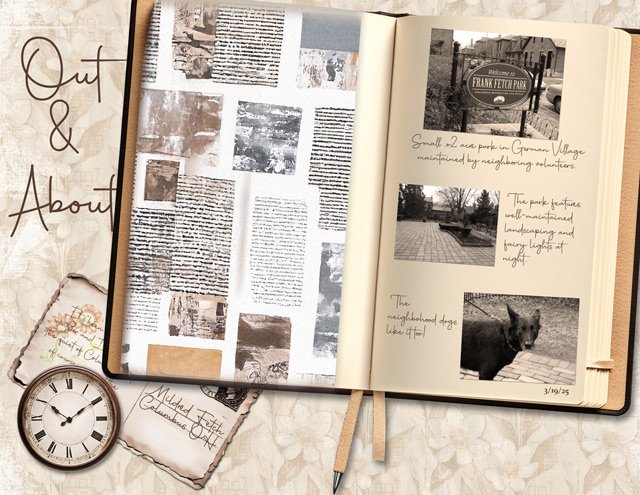 Out
&
About
Welcome to
FRANK FETCH PARK
Small 02 acre park in German Village
maintained by neighboring volunteers.
The park features
well-maintained
landscaping and
fairy lights at
night.
The
neighbohood dogs
like it too!
3/19/25
quiet of
Mildred Fetch
Columbus OH